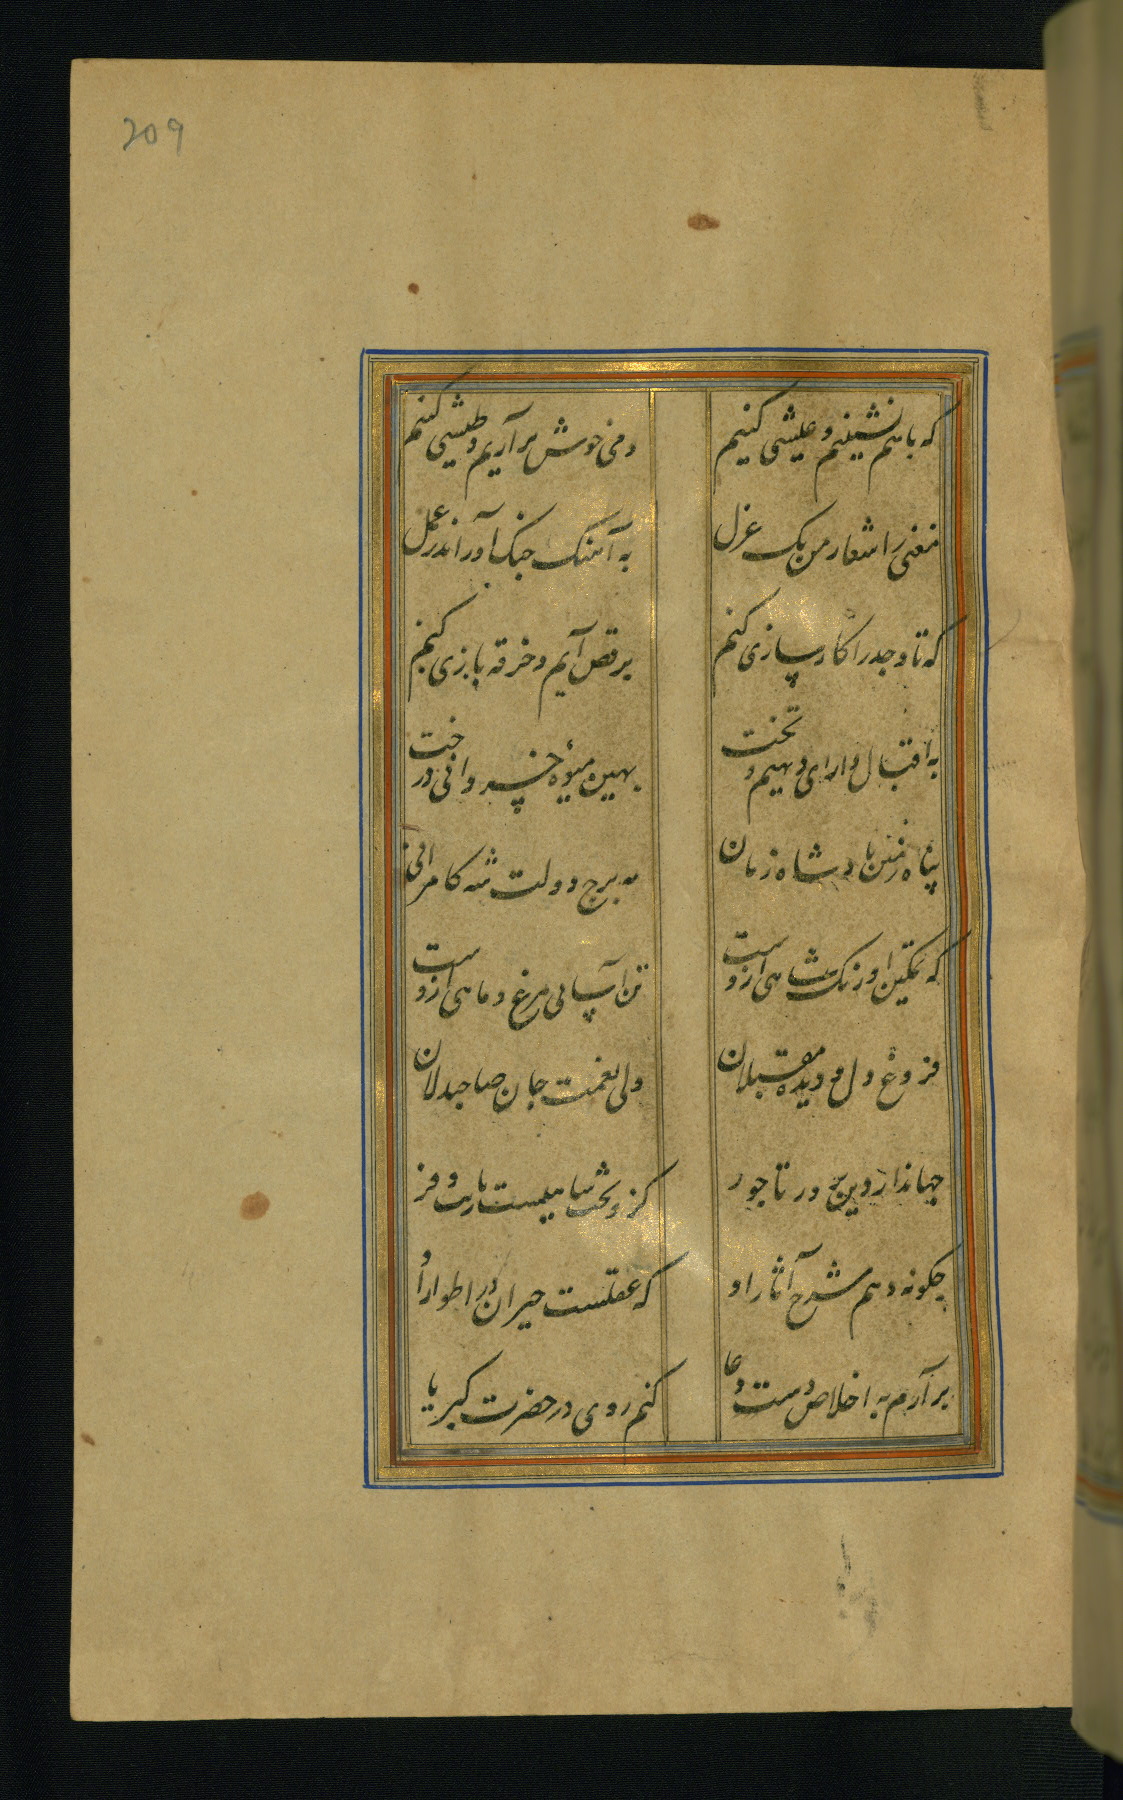 209
که با هم نشینیم و عیشی کنیم دمی خوش برآریم و طیشی کنیم
مغنی ز اشعار من یک غزل به آهنگ چنگ آور اندر عمل
که تا وجد را کارسازی کنم برقص آیم و خرقه بازی کنم
به اقبال دارای دیهیم و تخت بهین میوه خسروانی درخت
پناه زمین پادشاه زمان مه برج دولت شه کامران
که تمکین اورنگ شاهی ازوست تن آسانی مرغ و ماهی ازوست
فروغ دل و دیده مقبلان ولی نعمت جان صاحبدلان
جهاندار دین پرور تاجور کزو تخت
چگونه دهم شرح آثار او که عقلست حیران در اطوار او
برآرم به اخلاص دست دعا کنم روی در حضرت کبریا